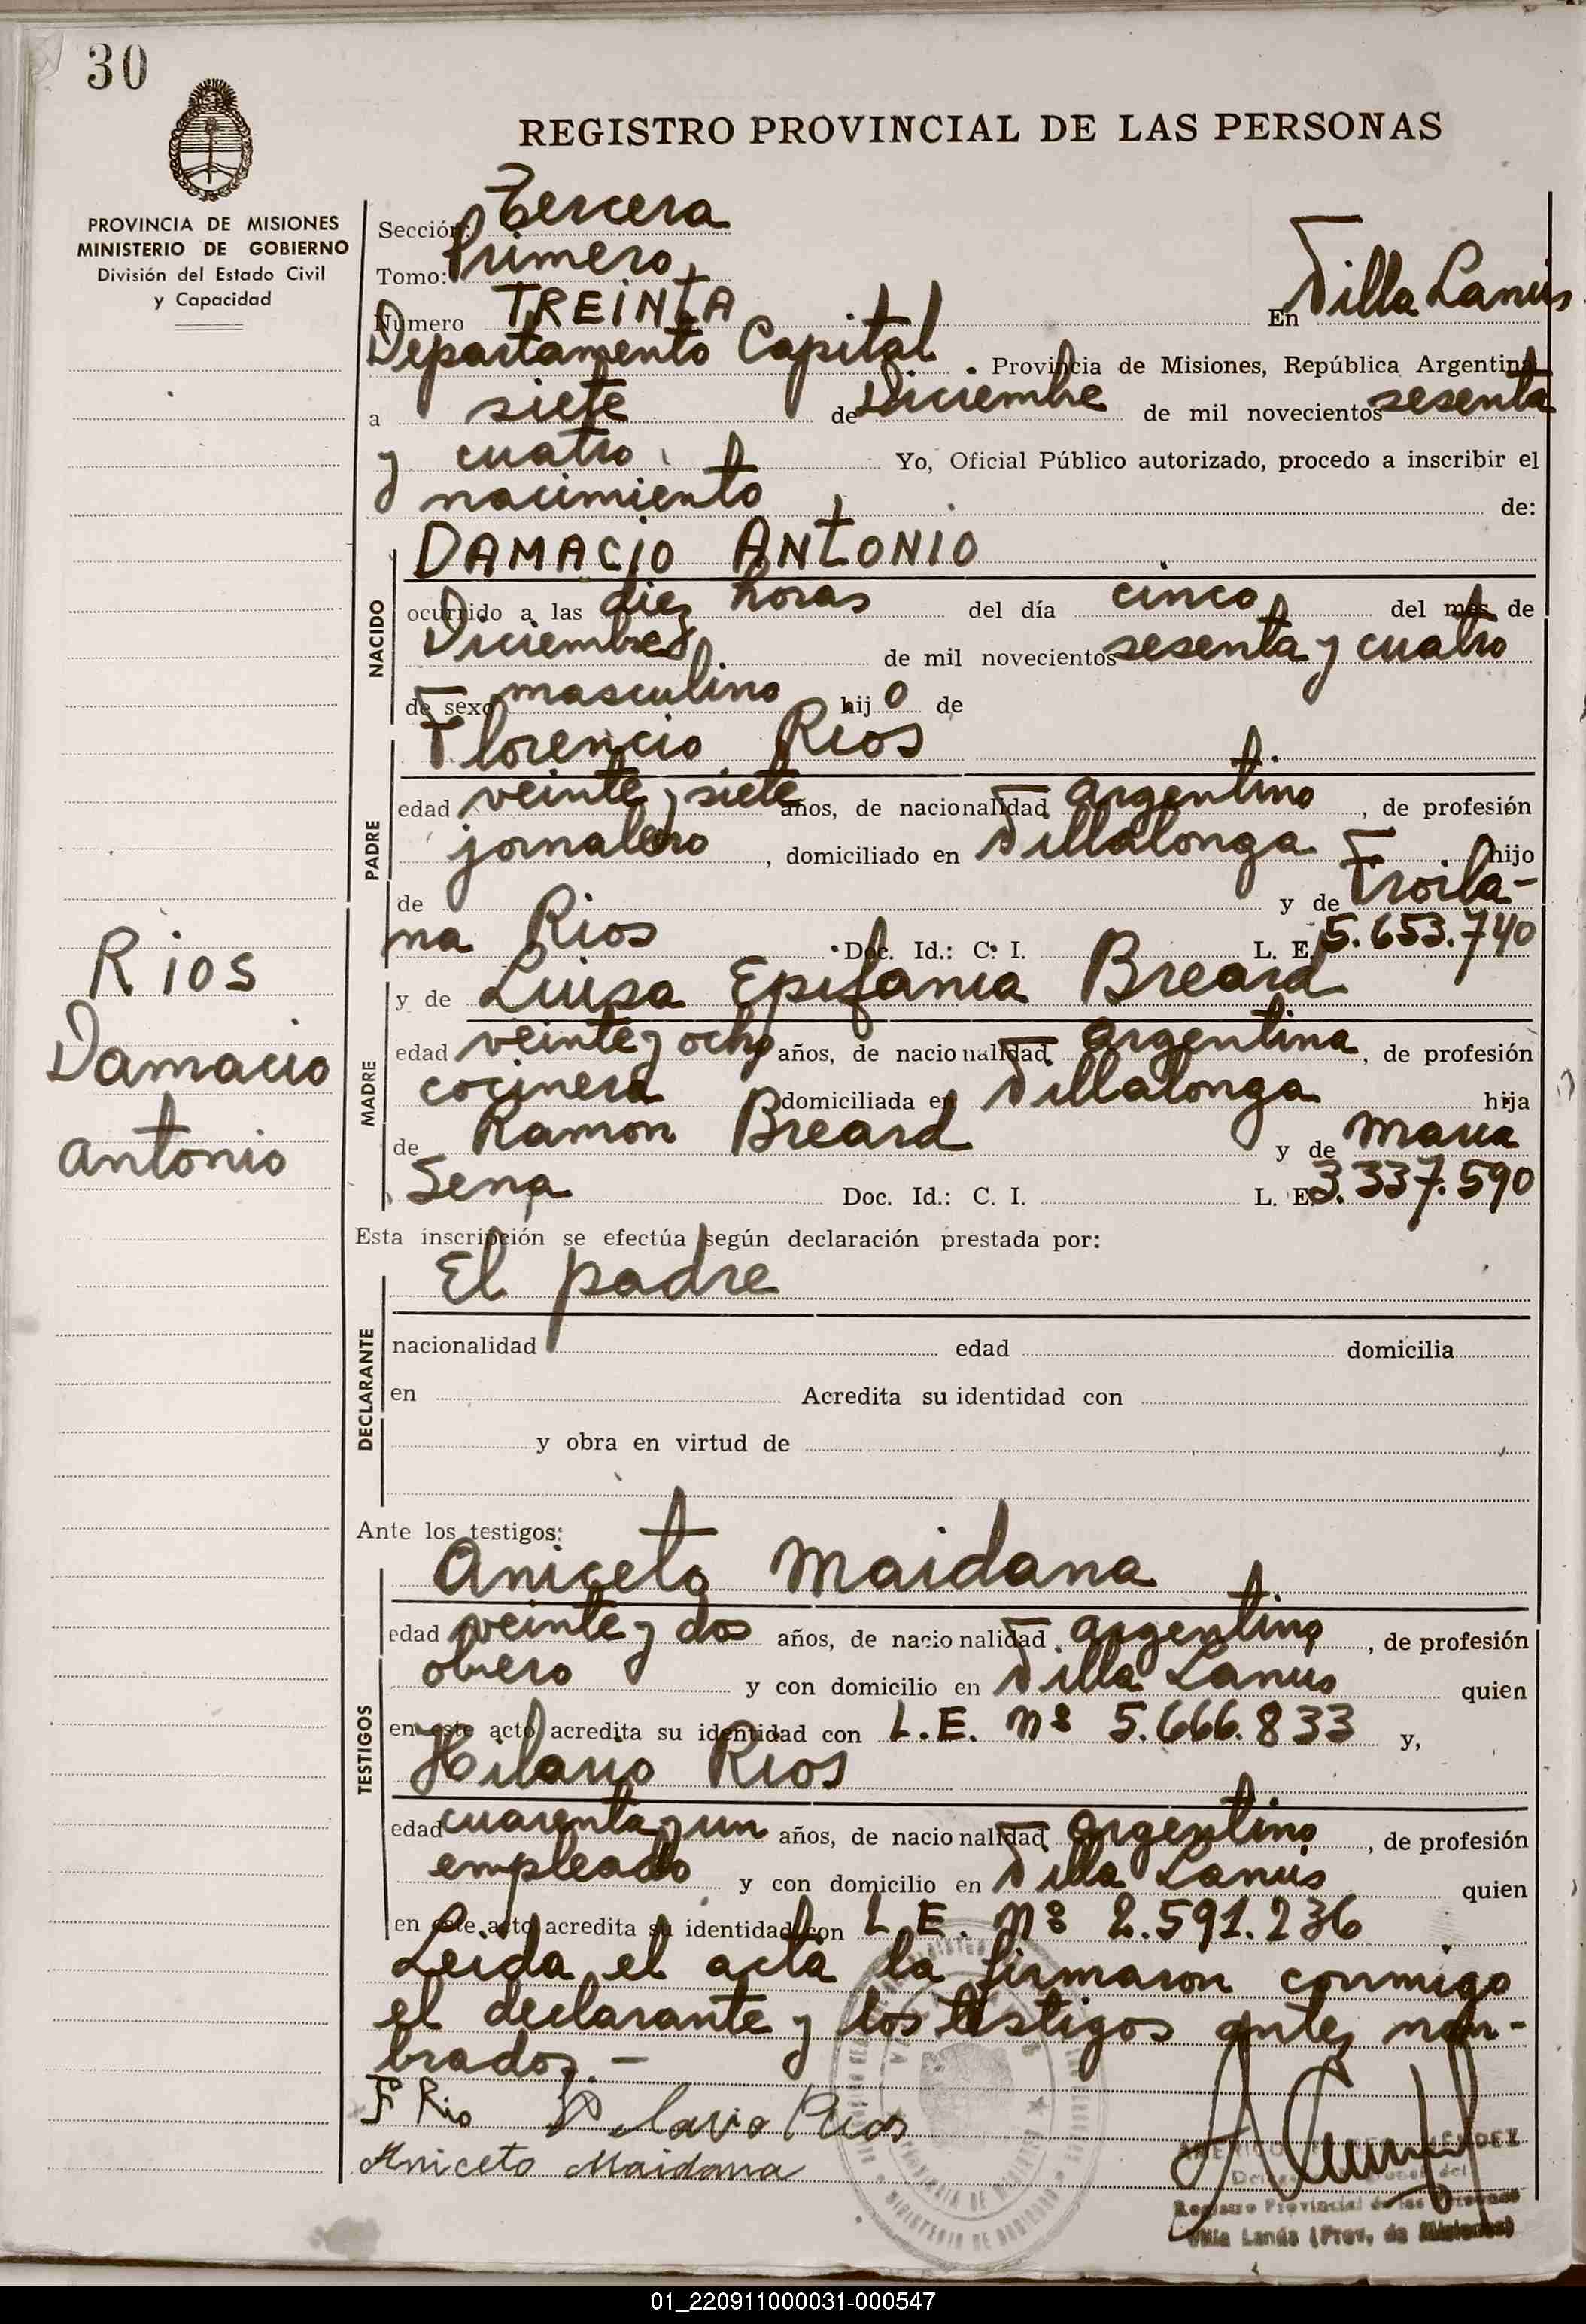 30
REGISTRO PROVINCIAL DE LAS PERSONAS
PROVINCIA DE MISIONES
MINISTERIO DE GOBIERNO
División del Estado Civil
y Capacidad
Sección: Tercera
Tomo: Primero
Número TREINTA En Villa Lanús
Departamento Capital Provincia de Misiones, República Argentina
a siete de Diciembre de mil novecientos sesenta
y cuatro Yo, Oficial Público autorizado, procedo a inscribir el
nacimiento de:
NACIDO
DAMACIO ANTONIO
ocurrido a las diez horas del día cinco del mes de
Diciembre de mil novecientos sesenta y cuatro
de sexo masculino hijo de
PADRE
Florencio Rios
edad veinte y siete años, de nacionalidad argentino, de profesión
jornalero, domiciliado en Villalonga hijo
de y de Troila-
na Rios Doc. Id.: C. I. L. E. 5.653.740
Rios
Damacio
Antonio
MADRE
y de Luisa Epifania Breard
edad veinte y ocho años, de nacionalidad argentina, de profesión
cocinera domiciliada en Villalonga hija
de Ramon Breard y de Maria
Sena Doc. Id.: C. I. L. E. 3.337.590
Esta inscripción se efectúa según declaración prestada por:
DECLARANTE
El padre
nacionalidad edad domicilia
en Acredita su identidad con
y obra en virtud de
Ante los testigos:
TESTIGOS
Aniceto Maidana
edad veinte y dos años, de nacionalidad argentino, de profesión
obrero y con domicilio en Villa Lanús quien
en este acto acredita su identidad con L.E. Nº 5.666.833 y,
Hilario Rios
edad cuarenta y un años, de nacionalidad argentino, de profesión
empleado y con domicilio en Villa Lanús quien
en este acto acredita su identidad con L.E. Nº 2.591.236
Leida el acta la firmaron conmigo
el declarante y los testigos antes nom-
brados.—
F Rio Hilario Rios
Aniceto Maidana
Registro Provincial de las Personas
Villa Lanús (Prov. de Misiones)
01_220911000031-000547